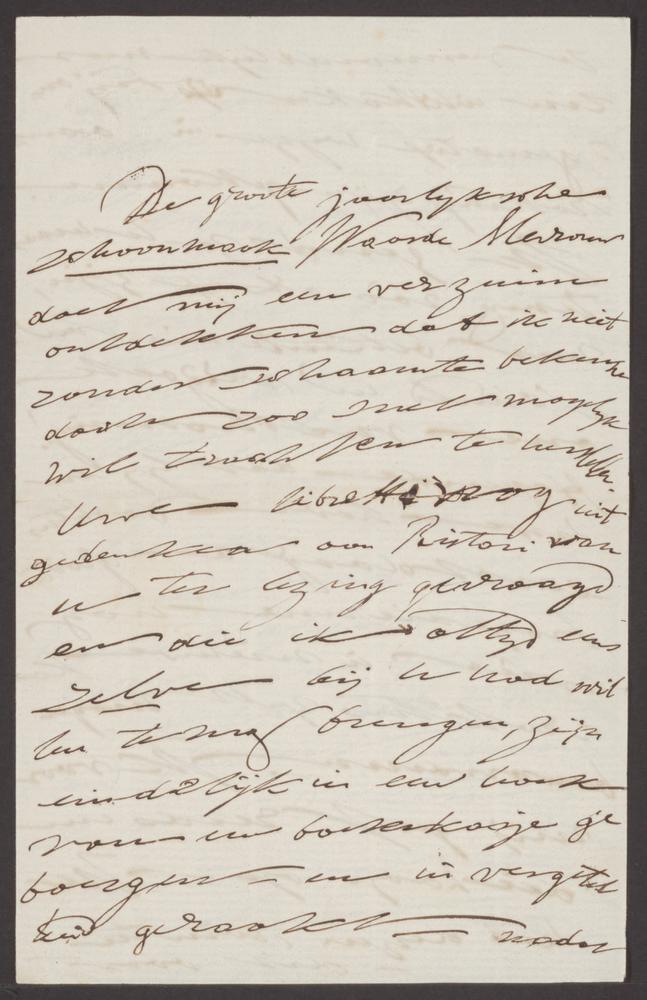 De groote jaarlyksche
schoonmaak Waarde Mevrouw
doet mij een verzuim
ontdekken dat ik niet
zonder schaamte bekenne
doch zoo snel mogelyk
wil trachten te herstellen.
Uwe libretti nog uit
gedenken aan Ristori van
u ter lezing gevraagd
en die ik altyd eens
zelve bij u had wil
len terug brengen, zijn
eindelijk in een hoek
van een boekekasje ge
borgen – en in vergetel
heid geraakt – nadat